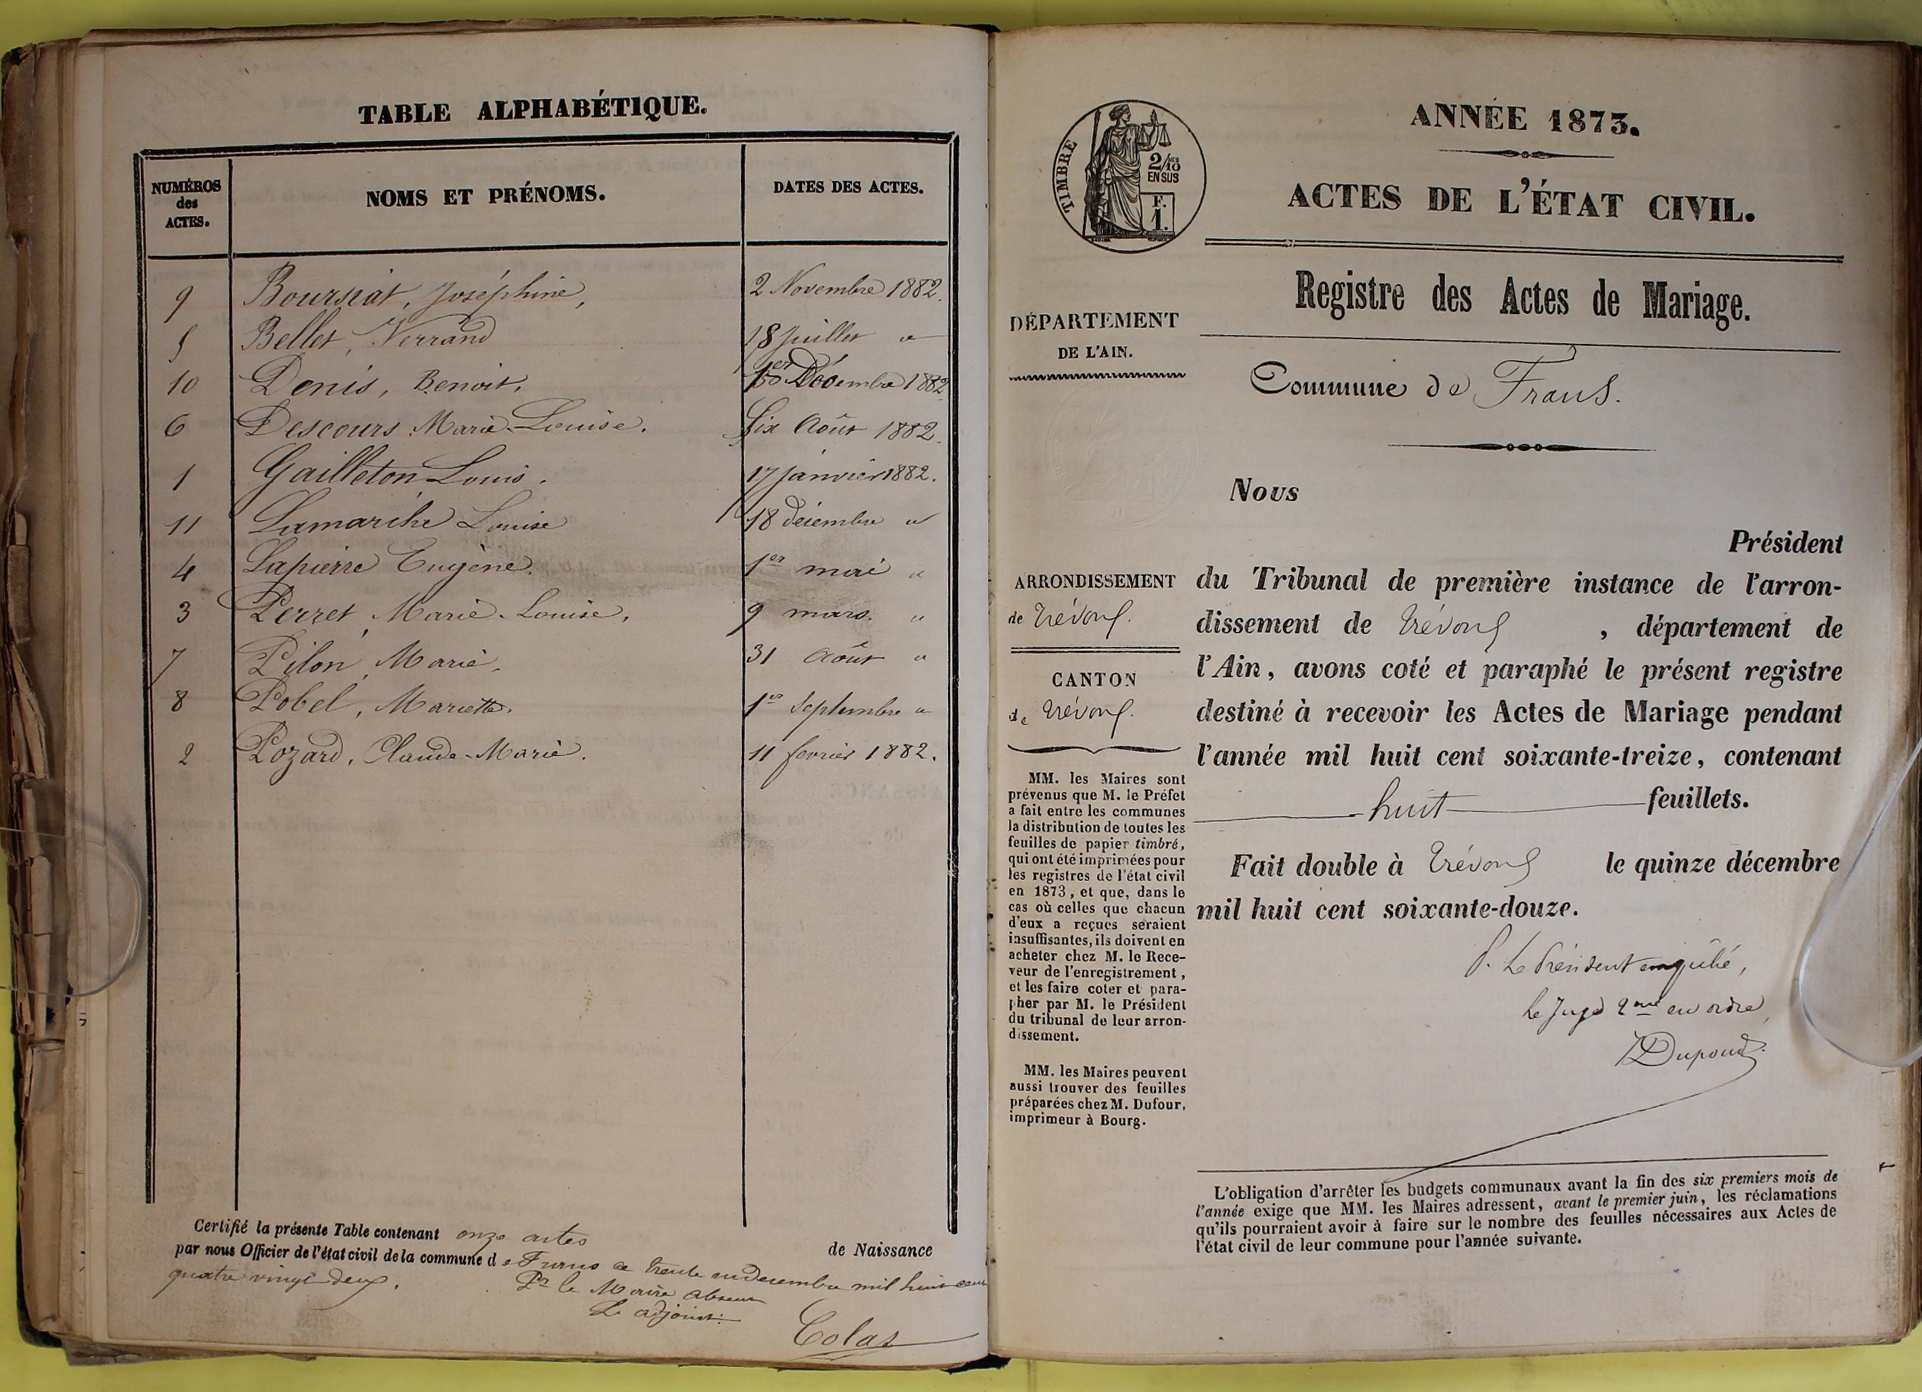 TABLE ALPHABÉTIQUE.
NUMÉROS
des
ACTES.
NOMS ET PRÉNOMS.
DATES DES ACTES.
9 Bourriat, Joséphine, 2 Novembre 1882.
5 Bellet, Verrand 18 Juillet "
10 Denis, Benoit, 1er Décembre 1882
6 Descours Marie-Louise. Six Août 1882.
1 Gailleton Louis. 17 janvier 1882.
11 Lamarche Louise 18 décembre "
4 Lapierre Eugène. 1er mai "
3 Perret, Marie-Louise, 9 mars. "
7 Pilon, Marie. 31 Août "
8 Pobel, Mariette. 1er Septembre "
2 Pozard, Claude-Marie. 11 fevrier 1882.
Certifié la présente Table contenant onze actes de Naissance
par nous Officier de l'état civil de la commune de Frans ce trente un decembre mil huit cent
quatre vingt deux.
Pr le Maire absent
L'adjoint:
Colas
TIMBRE
2/10 EN SUS
F.
1.
ANNÉE 1873.
ACTES DE L'ÉTAT CIVIL.
Registre des Actes de Mariage.
DÉPARTEMENT
DE L'AIN.
Commune de Frans.
ARRONDISSEMENT
de Trévoux.
CANTON
de Trévoux.
MM. les Maires sont
prévenus que M. le Préfet
a fait entre les communes
la distribution de toutes les
feuilles de papier timbré,
qui ont été imprimées pour
les registres de l'état civil
en 1873, et que, dans le
cas où celles que chacun
d'eux a reçues seraient
insuffisantes, ils doivent en
acheter chez M. le Rece-
veur de l'enregistrement,
et les faire coter et para-
pher par M. le Président
du tribunal de leur arron-
dissement.
MM. les Maires peuvent
aussi trouver des feuilles
préparées chez M. Dufour,
imprimeur à Bourg.
Nous
Président
du Tribunal de première instance de l'arron-
dissement de Trévoux, département de
l'Ain, avons coté et paraphé le présent registre
destiné à recevoir les Actes de Mariage pendant
l'année mil huit cent soixante-treize, contenant
huit feuillets.
Fait double à Trévoux le quinze décembre
mil huit cent soixante-douze.
P. Le Président empêché,
Le Juge 2me en ordre,
Dupond
L'obligation d'arrêter les budgets communaux avant la fin des six premiers mois de
l'année exige que MM. les Maires adressent, avant le premier juin, les réclamations
qu'ils pourraient avoir à faire sur le nombre des feuilles nécessaires aux Actes de
l'état civil de leur commune pour l'année suivante.